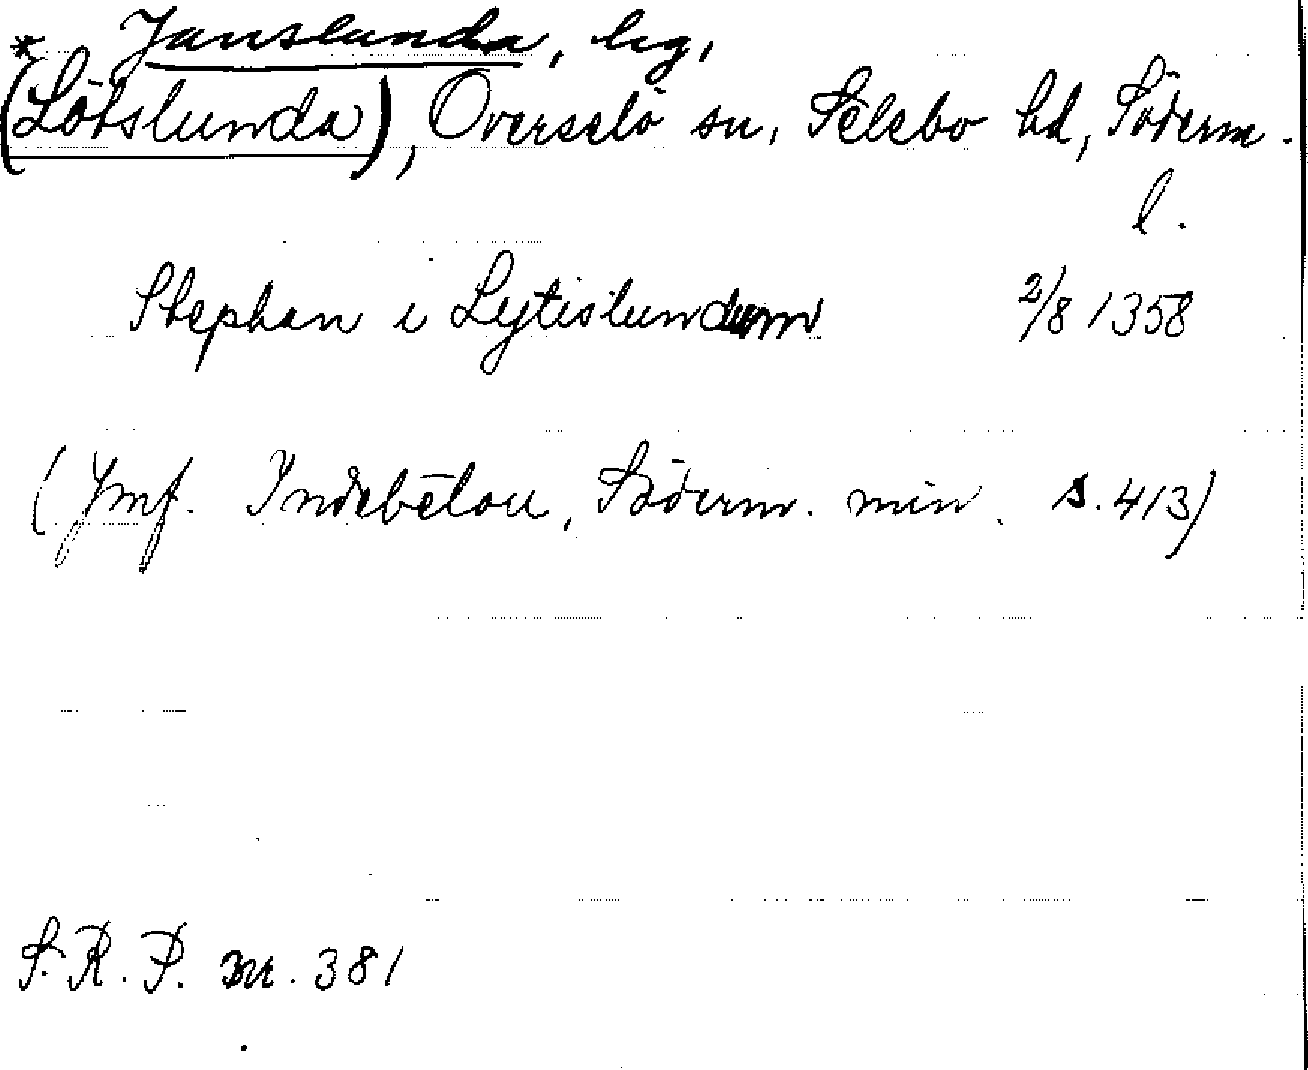 * Janslunda, lg,
(Lötslunda), Överselö sn, Selebo hd, Söderm.
l.
Stephan i Lytislundum 2/8 1358
(Jmf. Indebètou, Söderm. min. s. 413)
S. R. P. nr. 381